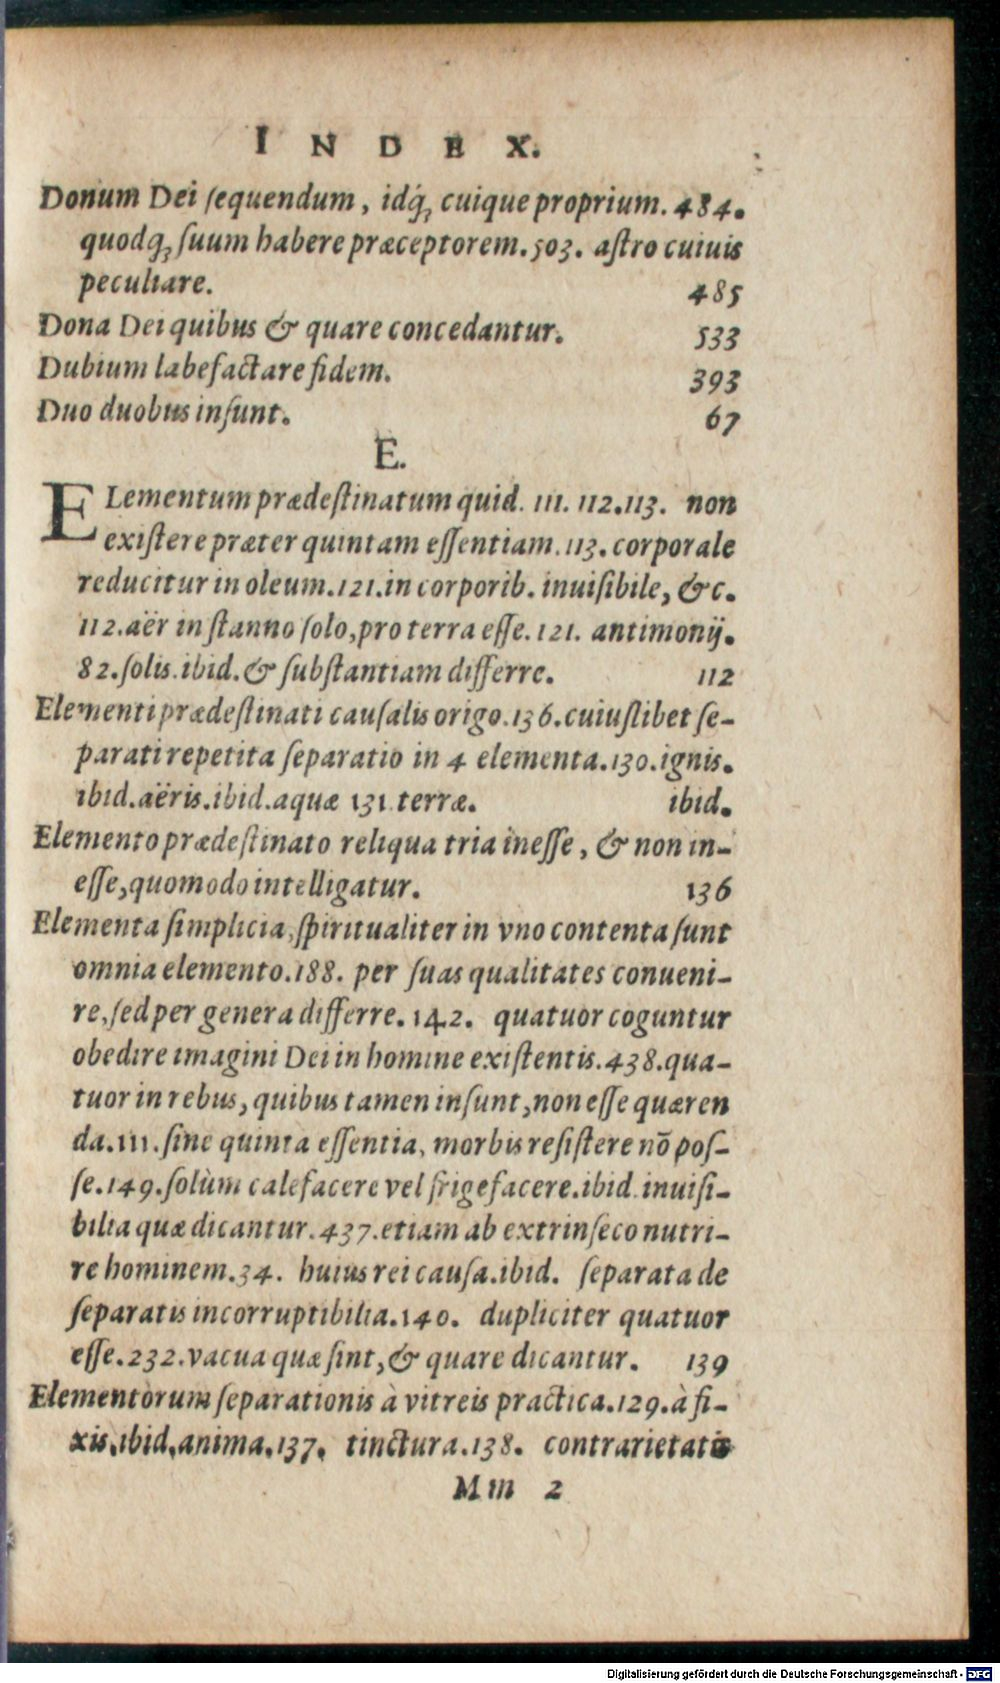 INDEX.
Donum Dei ſequendum, idq́ꝫ cuique proprium. 484.
quodqꝫ ſuum habere præceptorem. 503. aſtro cuiuis
peculiare. 485
Dona Dei quibus & quare concedantur. 533
Dubium labefactare fidem. 393
Duo duobus inſunt. 67
E.
ELementum prædeſtinatum quid. 111. 112. 113. non
exiſtere præter quintam eſſentiam. 113. corporale
reducitur in oleum. 121. in corporib. inuiſibile, &c.
112. aër in ſtanno ſolo, pro terra eſſe. 121. antimonij.
82. ſolis. ibid. & ſubſtantiam differre. 112
Elementi prædeſtinati cauſalis origo. 136. cuiuſlibet ſe-
parati repetita ſeparatio in 4 elementa. 130. ignis.
ibid. aëris. ibid. aquæ 131. terræ. ibid.
Elemento prædeſtinato reliqua tria ineſſe, & non in-
eſſe, quomodo intelligatur. 136
Elementa ſimplicia, ſpiritualiter in vno contenta ſunt
omnia elemento. 188. per ſuas qualitates conueni-
re, ſed per genera differre. 142. quatuor coguntur
obedire imagini Dei in homine exiſtentis. 438. qua-
tuor in rebus, quibus tamen inſunt, non eſſe quæren
da. 111. ſine quinta eſſentia, morbis reſiſtere nō poſ-
ſe. 149. ſolùm calefacere vel frigefacere. ibid. inuiſi-
bilia quæ dicantur. 437. etiam ab extrinſeco nutri-
re hominem. 34. huius rei cauſa. ibid. ſeparata de
ſeparatis incorruptibilia. 140. dupliciter quatuor
eſſe. 232. vacua quæ ſint, & quare dicantur. 139
Elementorum ſeparationis à vitreis practica. 129. à fi-
xis. ibid. anima. 137. tinctura. 138. contrarietatis
Mm 2
Digitalisierung gefördert durch die Deutsche Forschungsgemeinschaft - DFG